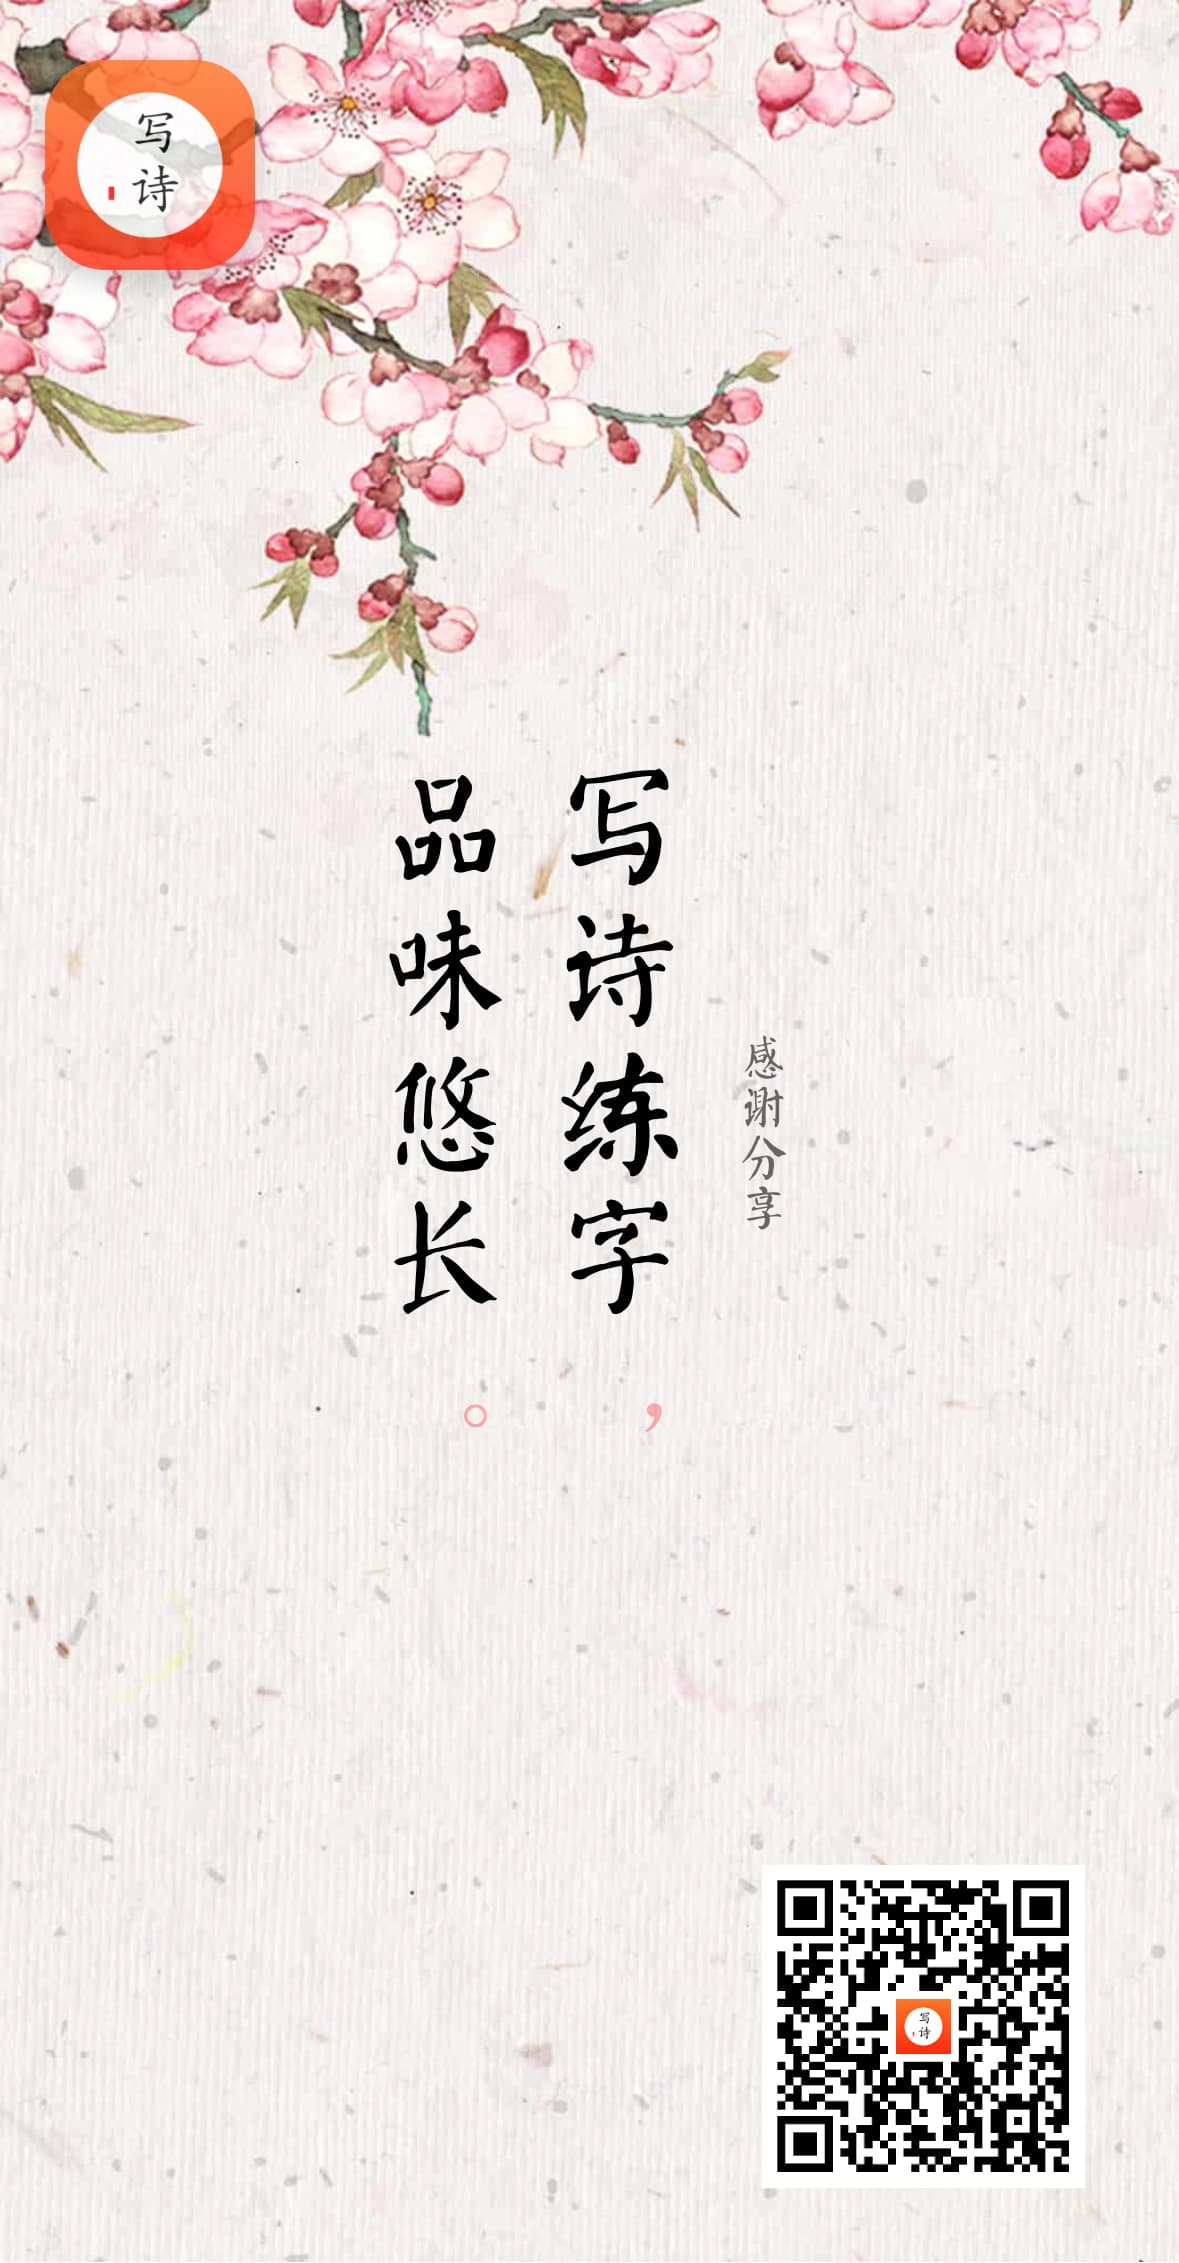 写诗
感谢分享
写诗练字，
品味悠长。
写诗